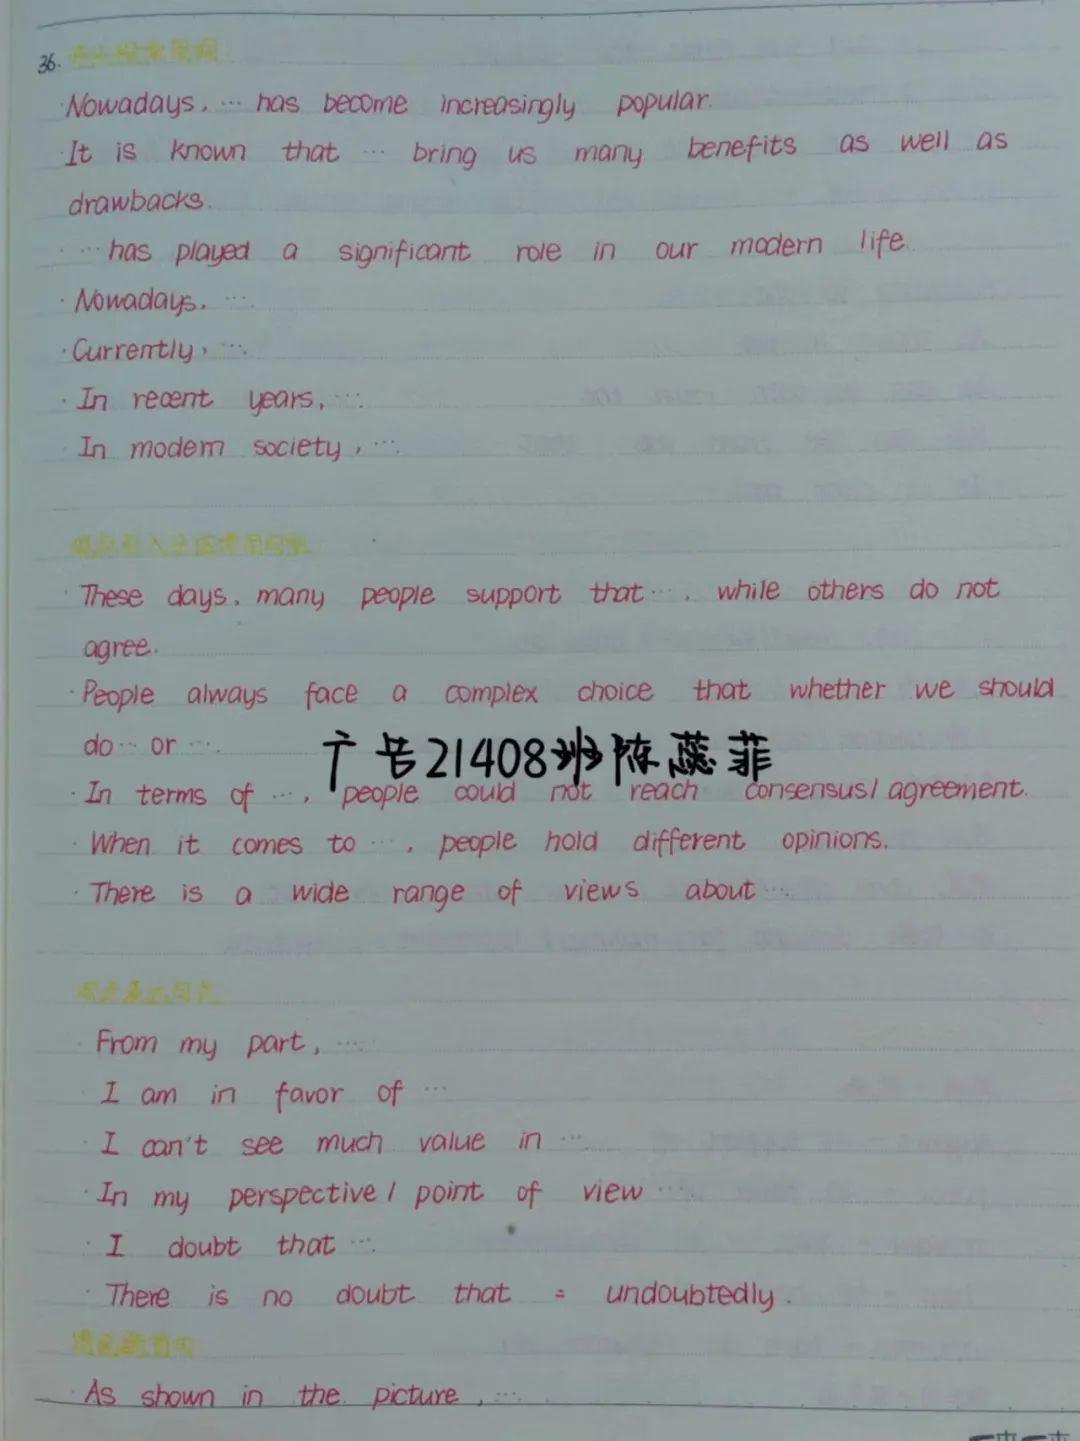 36. 开头段常用词
·Nowadays, … has become increasingly popular.
·It is known that … bring us many benefits as well as
drawbacks.
· …has played a significant role in our modern life
·Nowadays, …
·Currently, …
·In recent years, …
·In modern society, …
观点引入
·These days, many people support that…, while others do not
agree.
·People always face a complex choice that whether we should
do… or ….
广告21408班陈蕊菲
·In terms of …, people could not reach consensus/agreement.
·When it comes to …, people hold different opinions.
·There is a wide range of views about …
观点表达句式
·From my part, …
I am in favor of …
·I can't see much value in …
·In my perspective/point of view …
·I doubt that ….
·There is no doubt that = undoubtedly.
·As shown in the picture, …